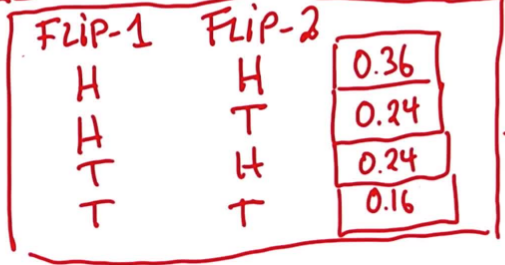 FLiP-1 FLiP-2
H H 0.36
H T 0.24
T H 0.24
T T 0.16